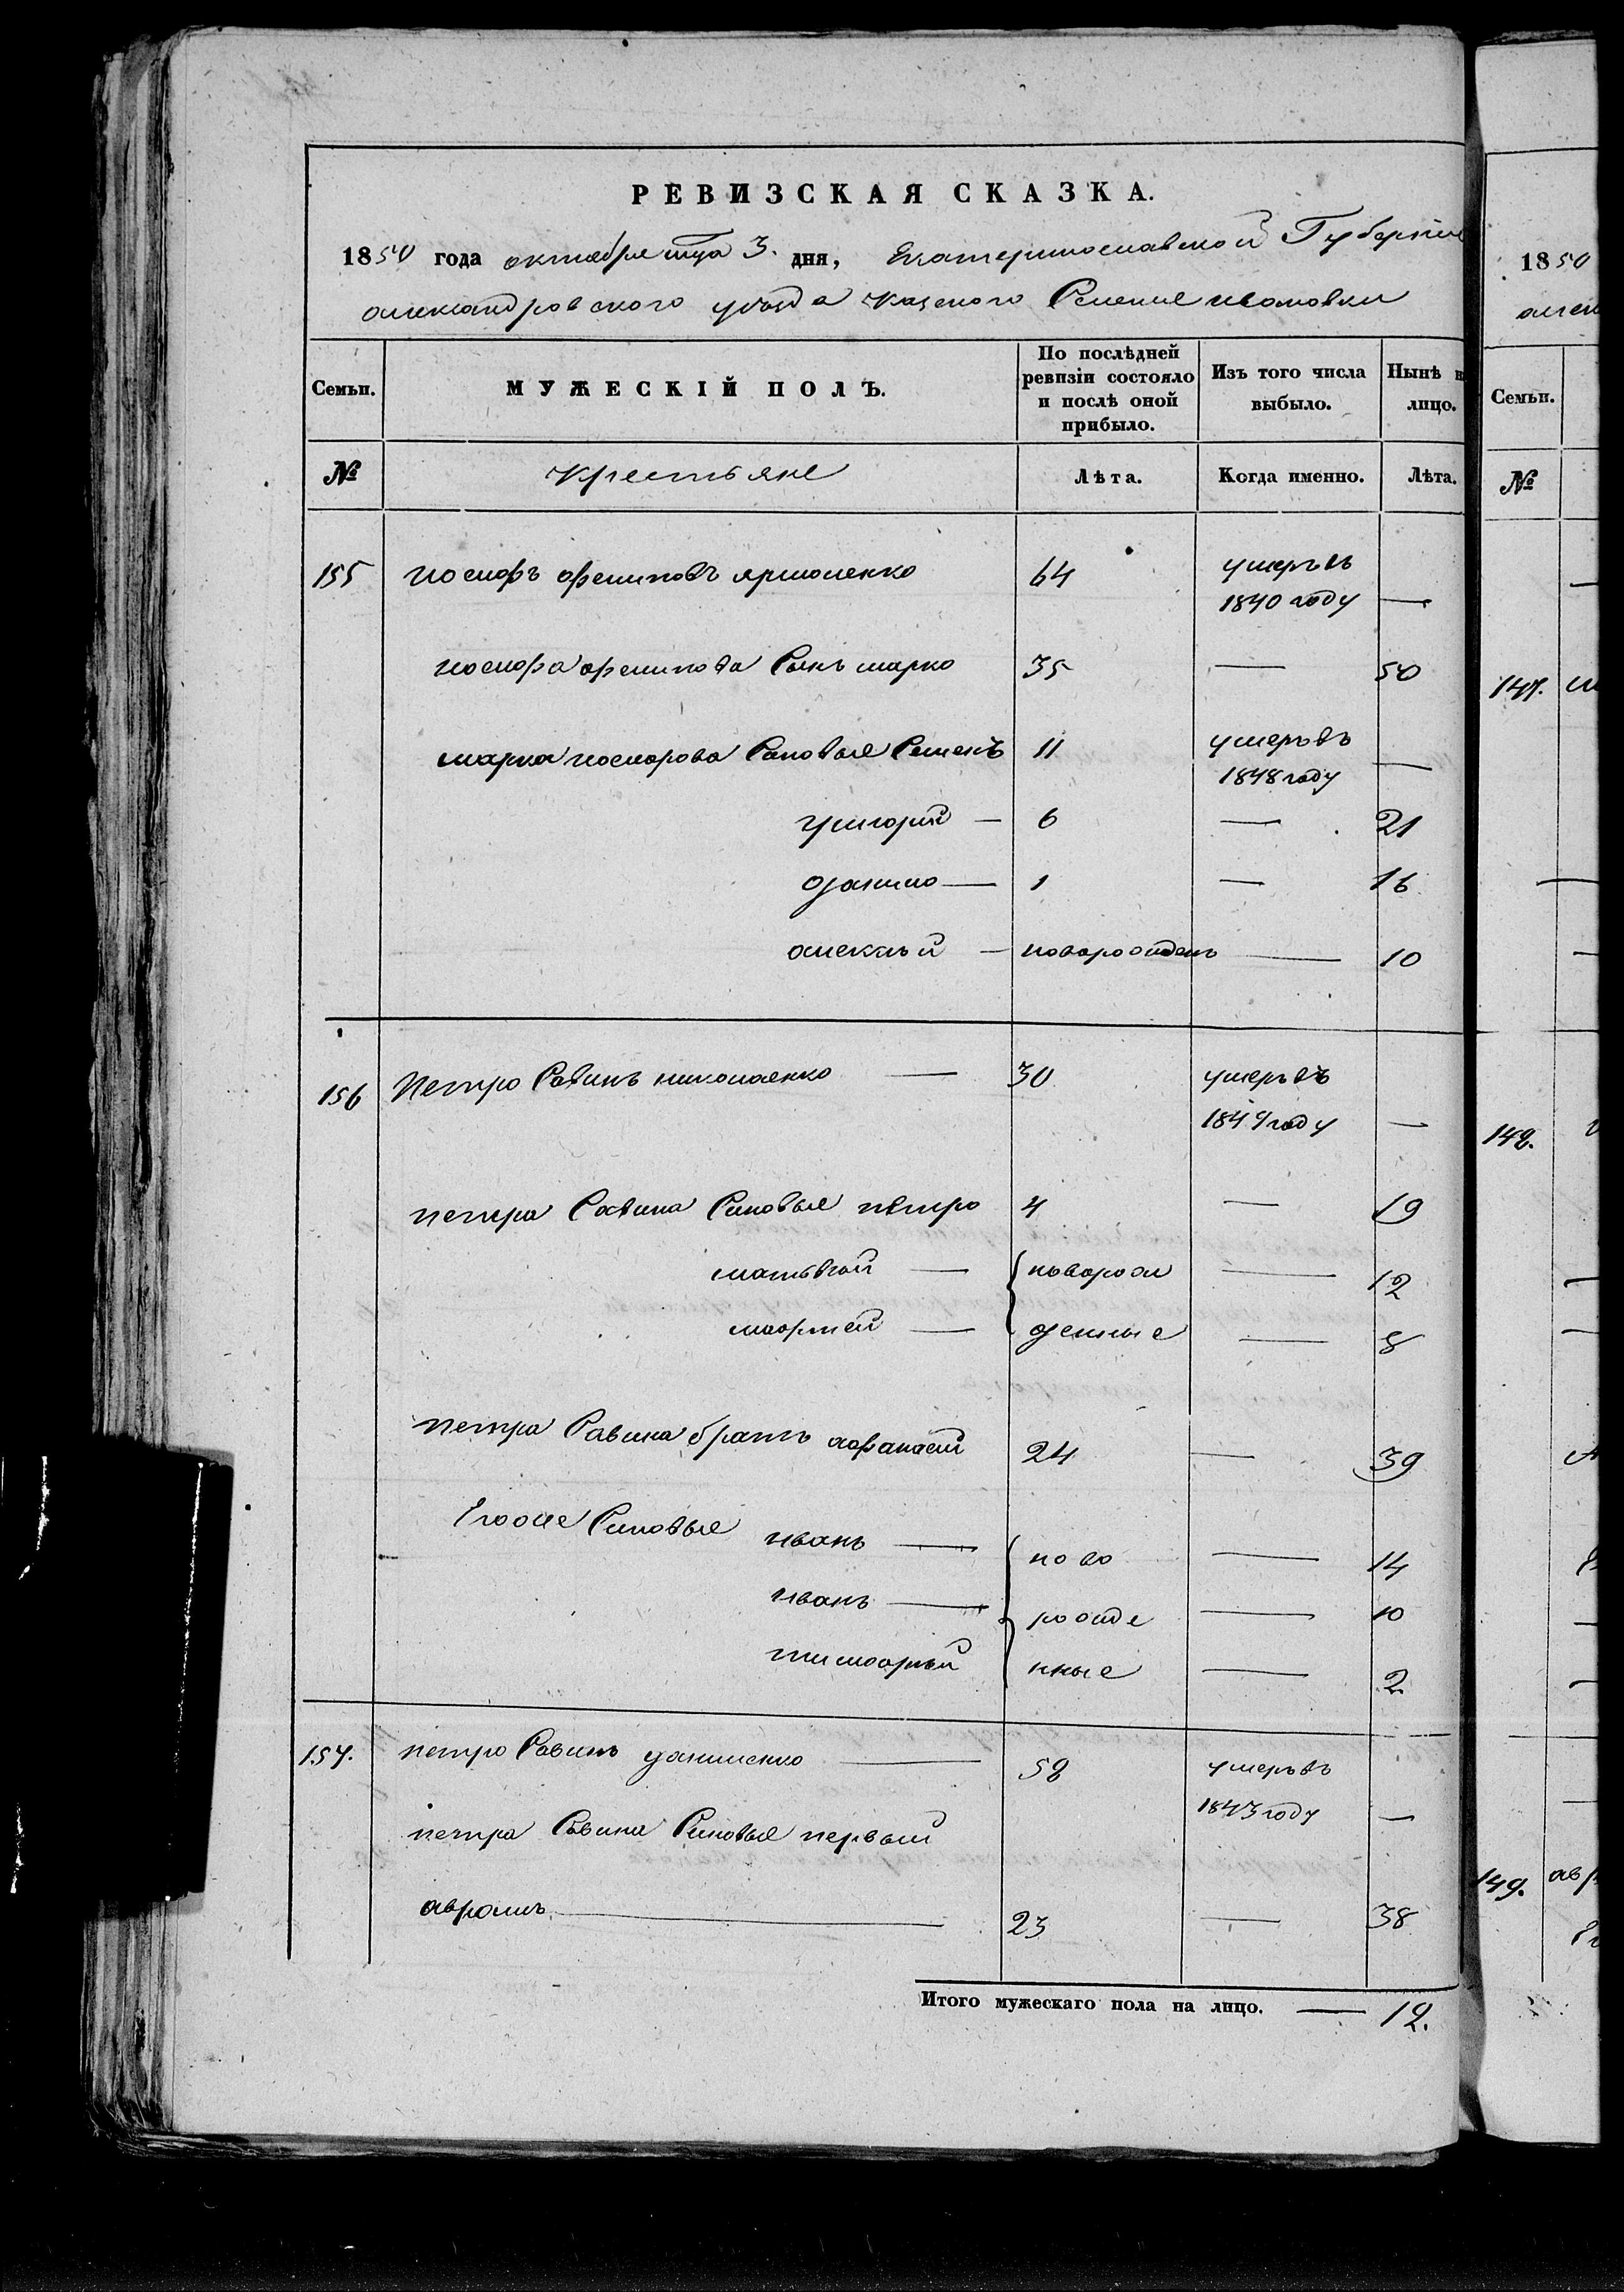 РЕВИЗСКАЯ СКАЗКА.
1850 года октября мца 3. дня, Екатеринославской Губернии
александровского уезда казеного Селение
Семьи. МУЖЕСКІЙ ПОЛЪ. По послѣдней ревизіи состояло и послѣ оной прибыло. Изъ того числа выбыло. Нынѣ н лицо.
№ Крестьяне Лѣта. Когда именно. Лѣта.
155 иосифъ филиповъ ярмоленко 64 умеръ въ
1840 году —
иосифа филипова Сынъ марко 35 — 50
марка иосифова Сыновья Семенъ 11 умеръ въ
1848 году —
григорий — 6 — 21
данило — 1 — 16
алексѣй — новорожденъ — 10
156 Петро Савинъ николаенко — 30 умеръ въ
1849 году —
петра Савина Синовья петро 4 — 19
матьвѣй — новорож — 12
мофтей — денные — 8
петра Савина братъ афанасий 24 — 39
Егоже Сыновья иванъ — ново — 14
иванъ — рожде — 10
тимофѣй нные — 2
157. петро Савинъ даниленко — 58 умеръ въ
1843 году —
петра Савина Синовья первый
аврамъ — 23 — 38
Итого мужескаго пола на лицо. — 12.
1850
алек
Семьи.
№
147.
148.
149. ав